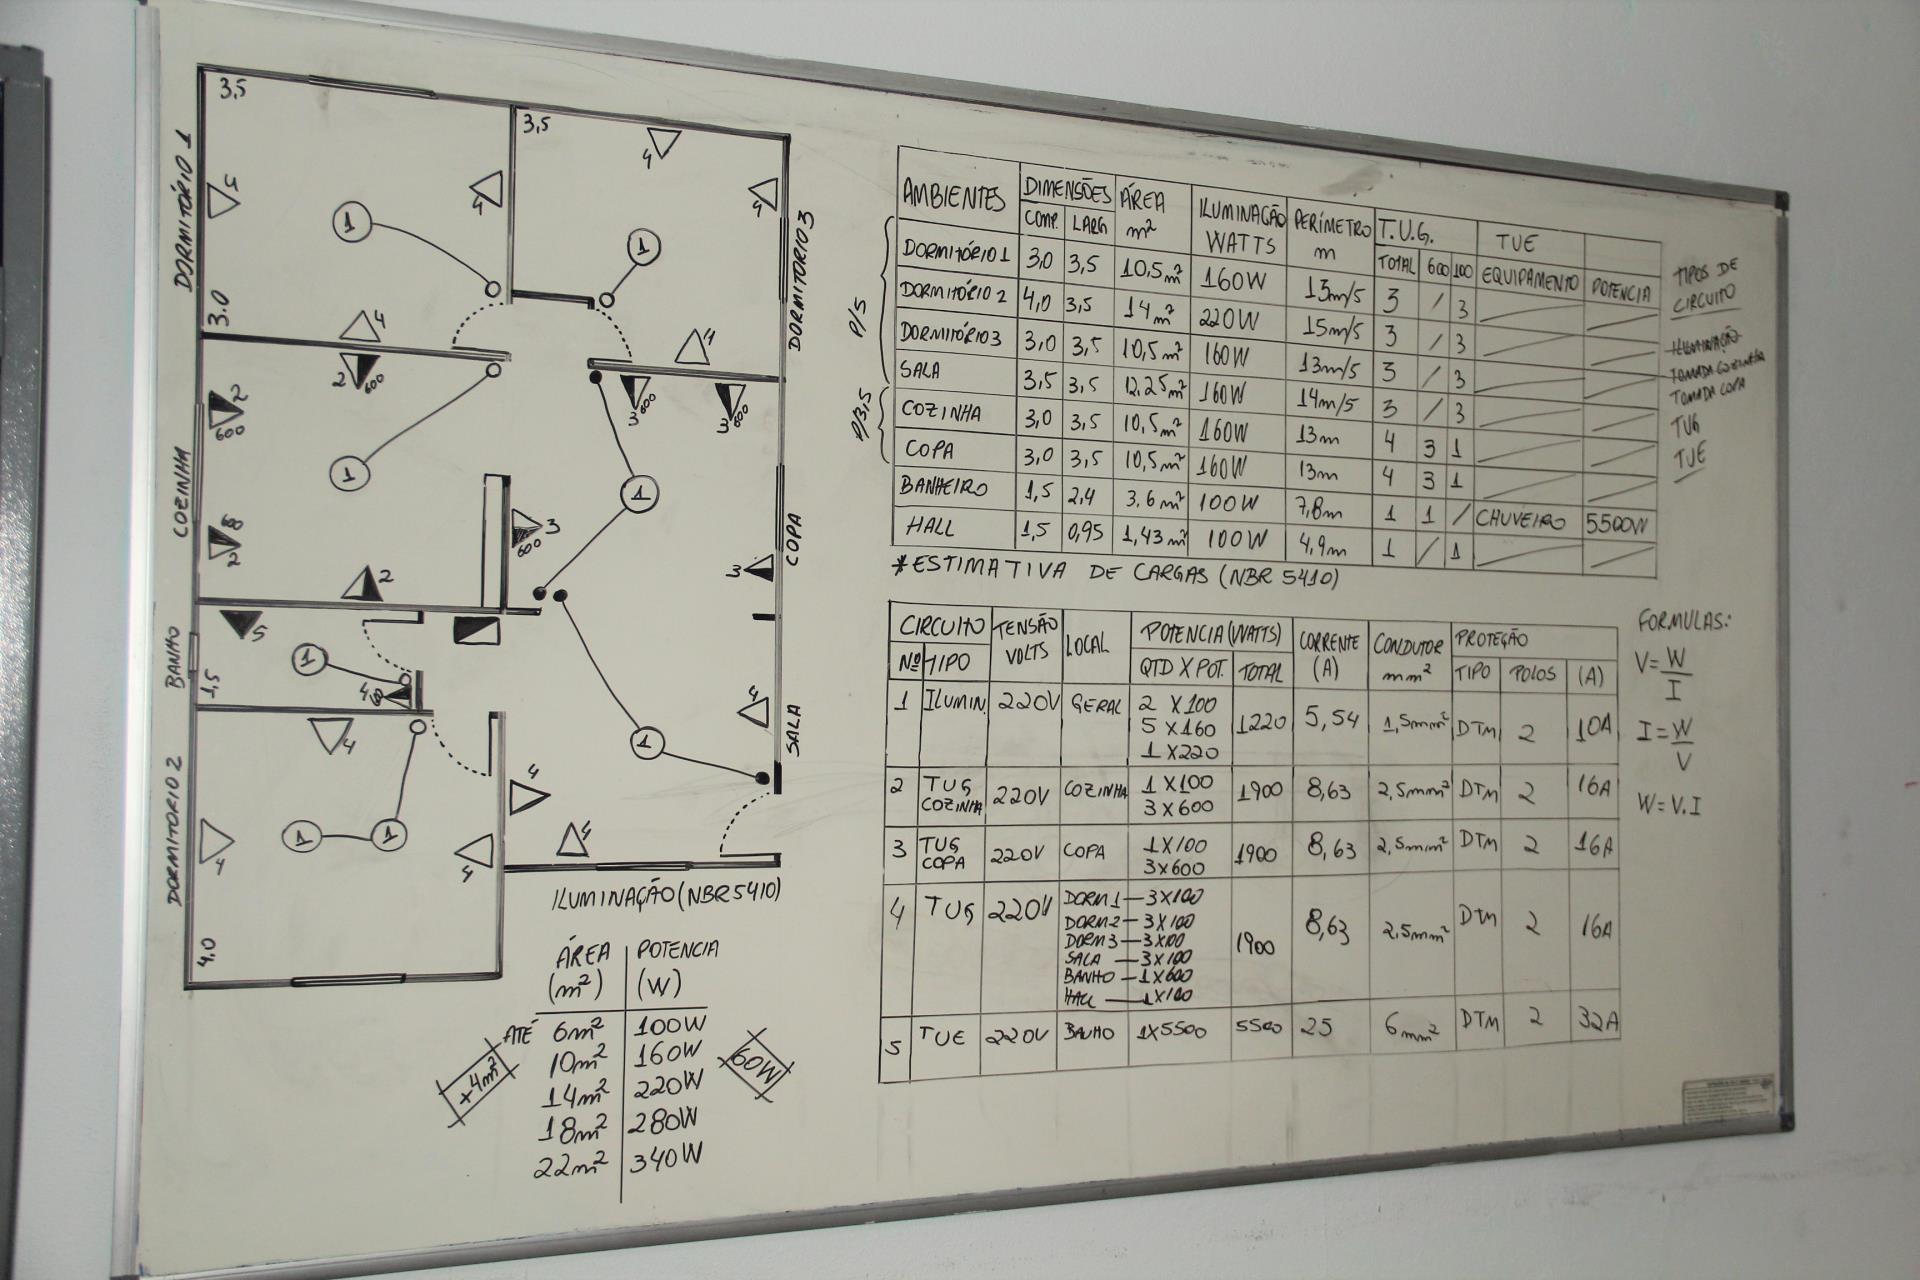 DORMITÓRIO 1
3,5
3.0
5
4
1
4
3,5
4
4
1
4
DORMITORIO 3
COZINHA
2 600
2
600
1
600
2
2
3 600
3 600
1
3
600
3
COPA
BANHO
1,5
5
1
4
4
SALA
1
4
4
DORMITORIO 2
4,0
4
4
1 1
4
ILUMINAÇÃO (NBR 5410)
ÁREA (m²) POTENCIA (W)
ATÉ 6m² 100W
10m² 160W
14m² 220W
18m² 280W
22m² 340W
+4m²
60W
AMBIENTES DIMENSÕES ÁREA m² ILUMINAÇÃO WATTS PERÍMETRO m T.U.G. TUE
COMP. LARG TOTAL 600 100 EQUIPAMENTO POTENCIA
DORMITÓRIO 1 3,0 3,5 10,5m² 160W 13m/5 3 / 3
DORMITÓRIO 2 4,0 3,5 14m² 220W 15m/5 3 / 3
DORMITÓRIO 3 3,0 3,5 10,5m² 160W 13m/5 3 / 3
SALA 3,5 3,5 12,25m² 160W 14m/5 3 / 3
COZINHA 3,0 3,5 10,5m² 160W 13m 4 3 1
COPA 3,0 3,5 10,5m² 160W 13m 4 3 1
BANHEIRO 1,5 2,4 3.6m² 100W 7,8m 1 1 / CHUVEIRO 5500W
HALL 1,5 0,95 1,43m² 100W 4,9m 1 / 1
P/5
P/3,5
*ESTIMATIVA DE CARGAS (NBR 5410)
TIPOS DE
CIRCUITO
ILUMINAÇÃO
TOMADA COZINHA
TOMADA COPA
TUG
TUE
CIRCUITO TENSÃO VOLTS LOCAL POTENCIA (WATTS) CORRENTE (A) CONDUTOR mm² PROTEÇÃO
Nº TIPO QTD X POT. TOTAL TIPO POLOS (A)
1 ILUMIN. 220V GERAL 2 X100 1220 5,54 1,5mm² DTM 2 10A
5 X160
1 X220
2 TUG COZINHA 220V COZINHA 1 X100 1900 8,63 2,5mm² DTM 2 16A
3 X600
3 TUG COPA 220V COPA 1X100 1900 8,63 2,5mm² DTM 2 16A
3X600
4 TUG 220V DORM 1 — 3X100 1900 8,63 2,5mm² DTM 2 16A
DORM 2 — 3X100
DORM 3 — 3X100
SALA — 3X100
BANHO — 1X600
HALL — 1X100
5 TUE 220V BANHO 1X5500 5500 25 6mm² DTM 2 32A
FORMULAS:
V=W/I
I=W/V
W=V.I